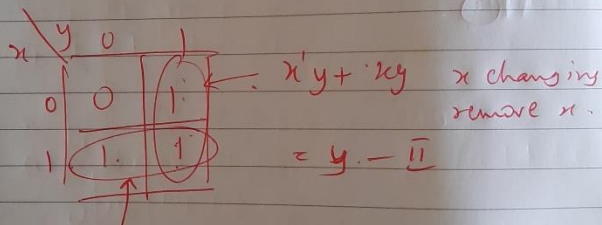 x y 0 1
0 0 1 x'y + xy x changing
remove x.
1 1 1 = y. – II